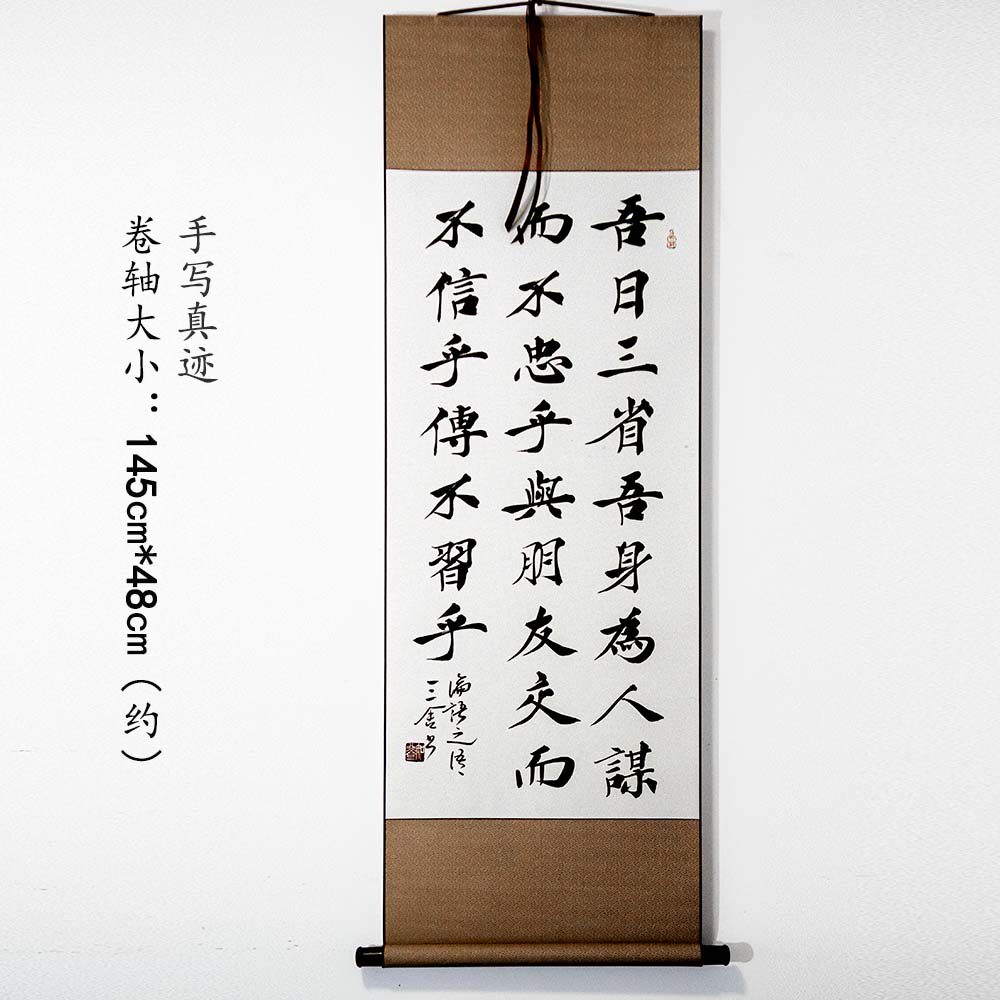 吾日三省吾身為人謀
而不忠乎與朋友交而
不信乎傳不習乎
論語之語
三舍書
手写真迹
卷轴大小：145cm*48cm（约）